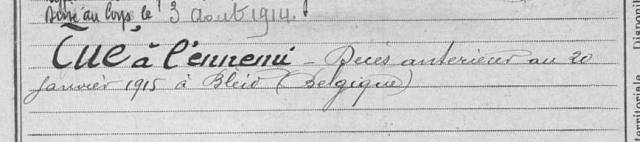 Arrivé au Corps le 3 Août 1914.
Tué à l'ennemi - Décès antérieur au 20
janvier 1915 à Bleid (Belgique)
Disponibil
territoriale